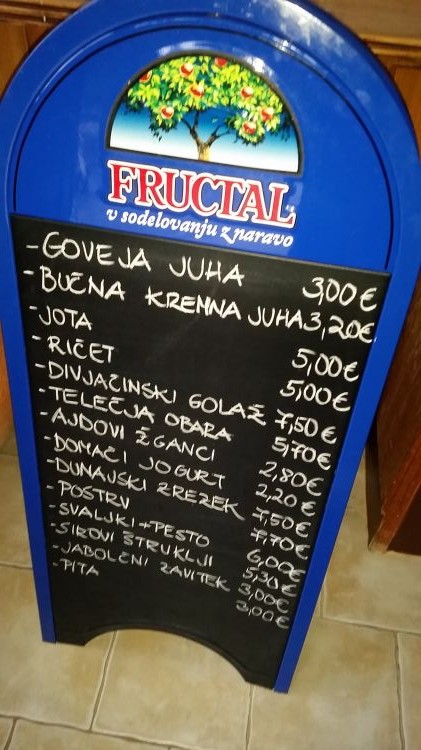 FRUCTAL
v sodelovanju z naravo
- GOVEJA JUHA 3,00€
- BUČNA KREMNA JUHA 3,20€
- JOTA 5,00€
- RIČET 5,00€
- DIVJAČINSKI GOLAŽ 7,50€
- TELEČJA OBARA 5,70€
- AJDOVI ŽGANCI 2,80€
- DOMAČI JOGURT 2,20€
- DUNAJSKI ZREZEK 7,50€
- POSTRV 7,70€
- SVALJKI + PESTO 6,00€
- SIROVI ŠTRUKLJI 5,30€
- JABOLČNI ZAVITEK 3,00€
- PITA 3,00€